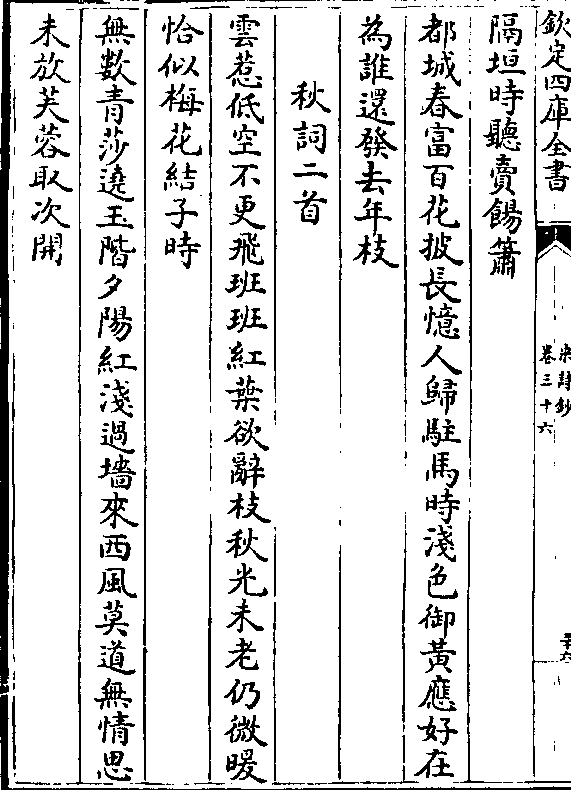 欽定四庫全書
宋詩鈔
卷三十六
隔垣時聽賣餳簫
都城春富百花披長憶人歸駐馬時淺色御黃應好在
為誰還發去年枝
秋詞二首
雲惹低空不更飛班班紅葉欲辭枝秋光未老仍微暖
恰似梅花結子時
無數青莎遶玉階夕陽紅淺過墻來西風莫道無情思
未放芙蓉取次開